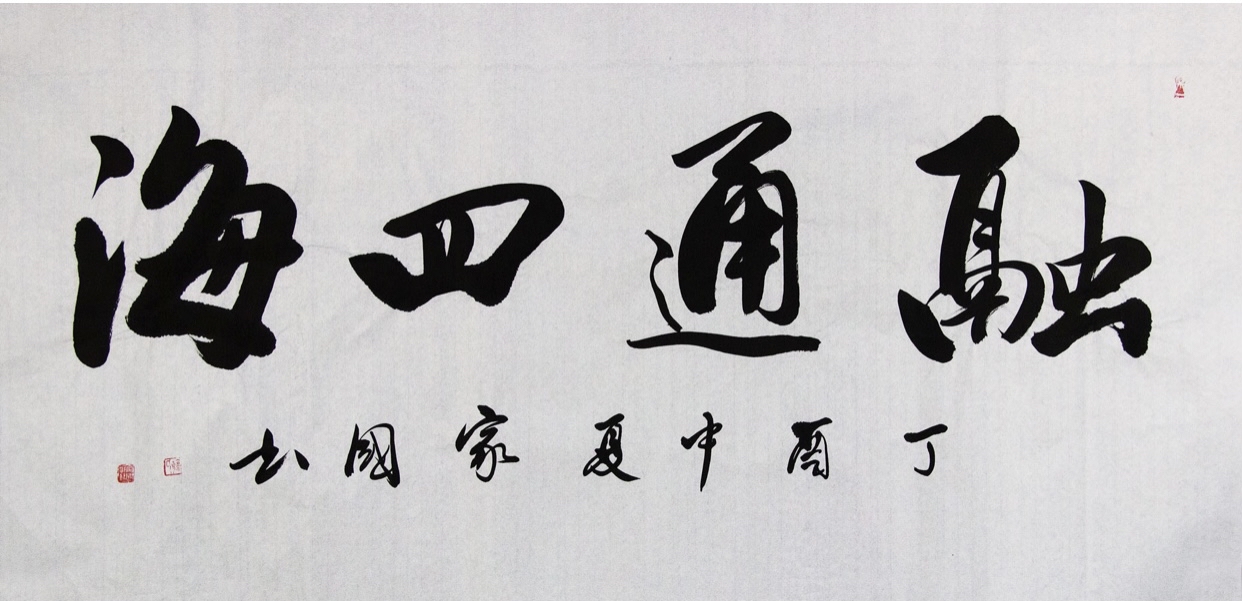 融通四海
丁酉中夏家國书